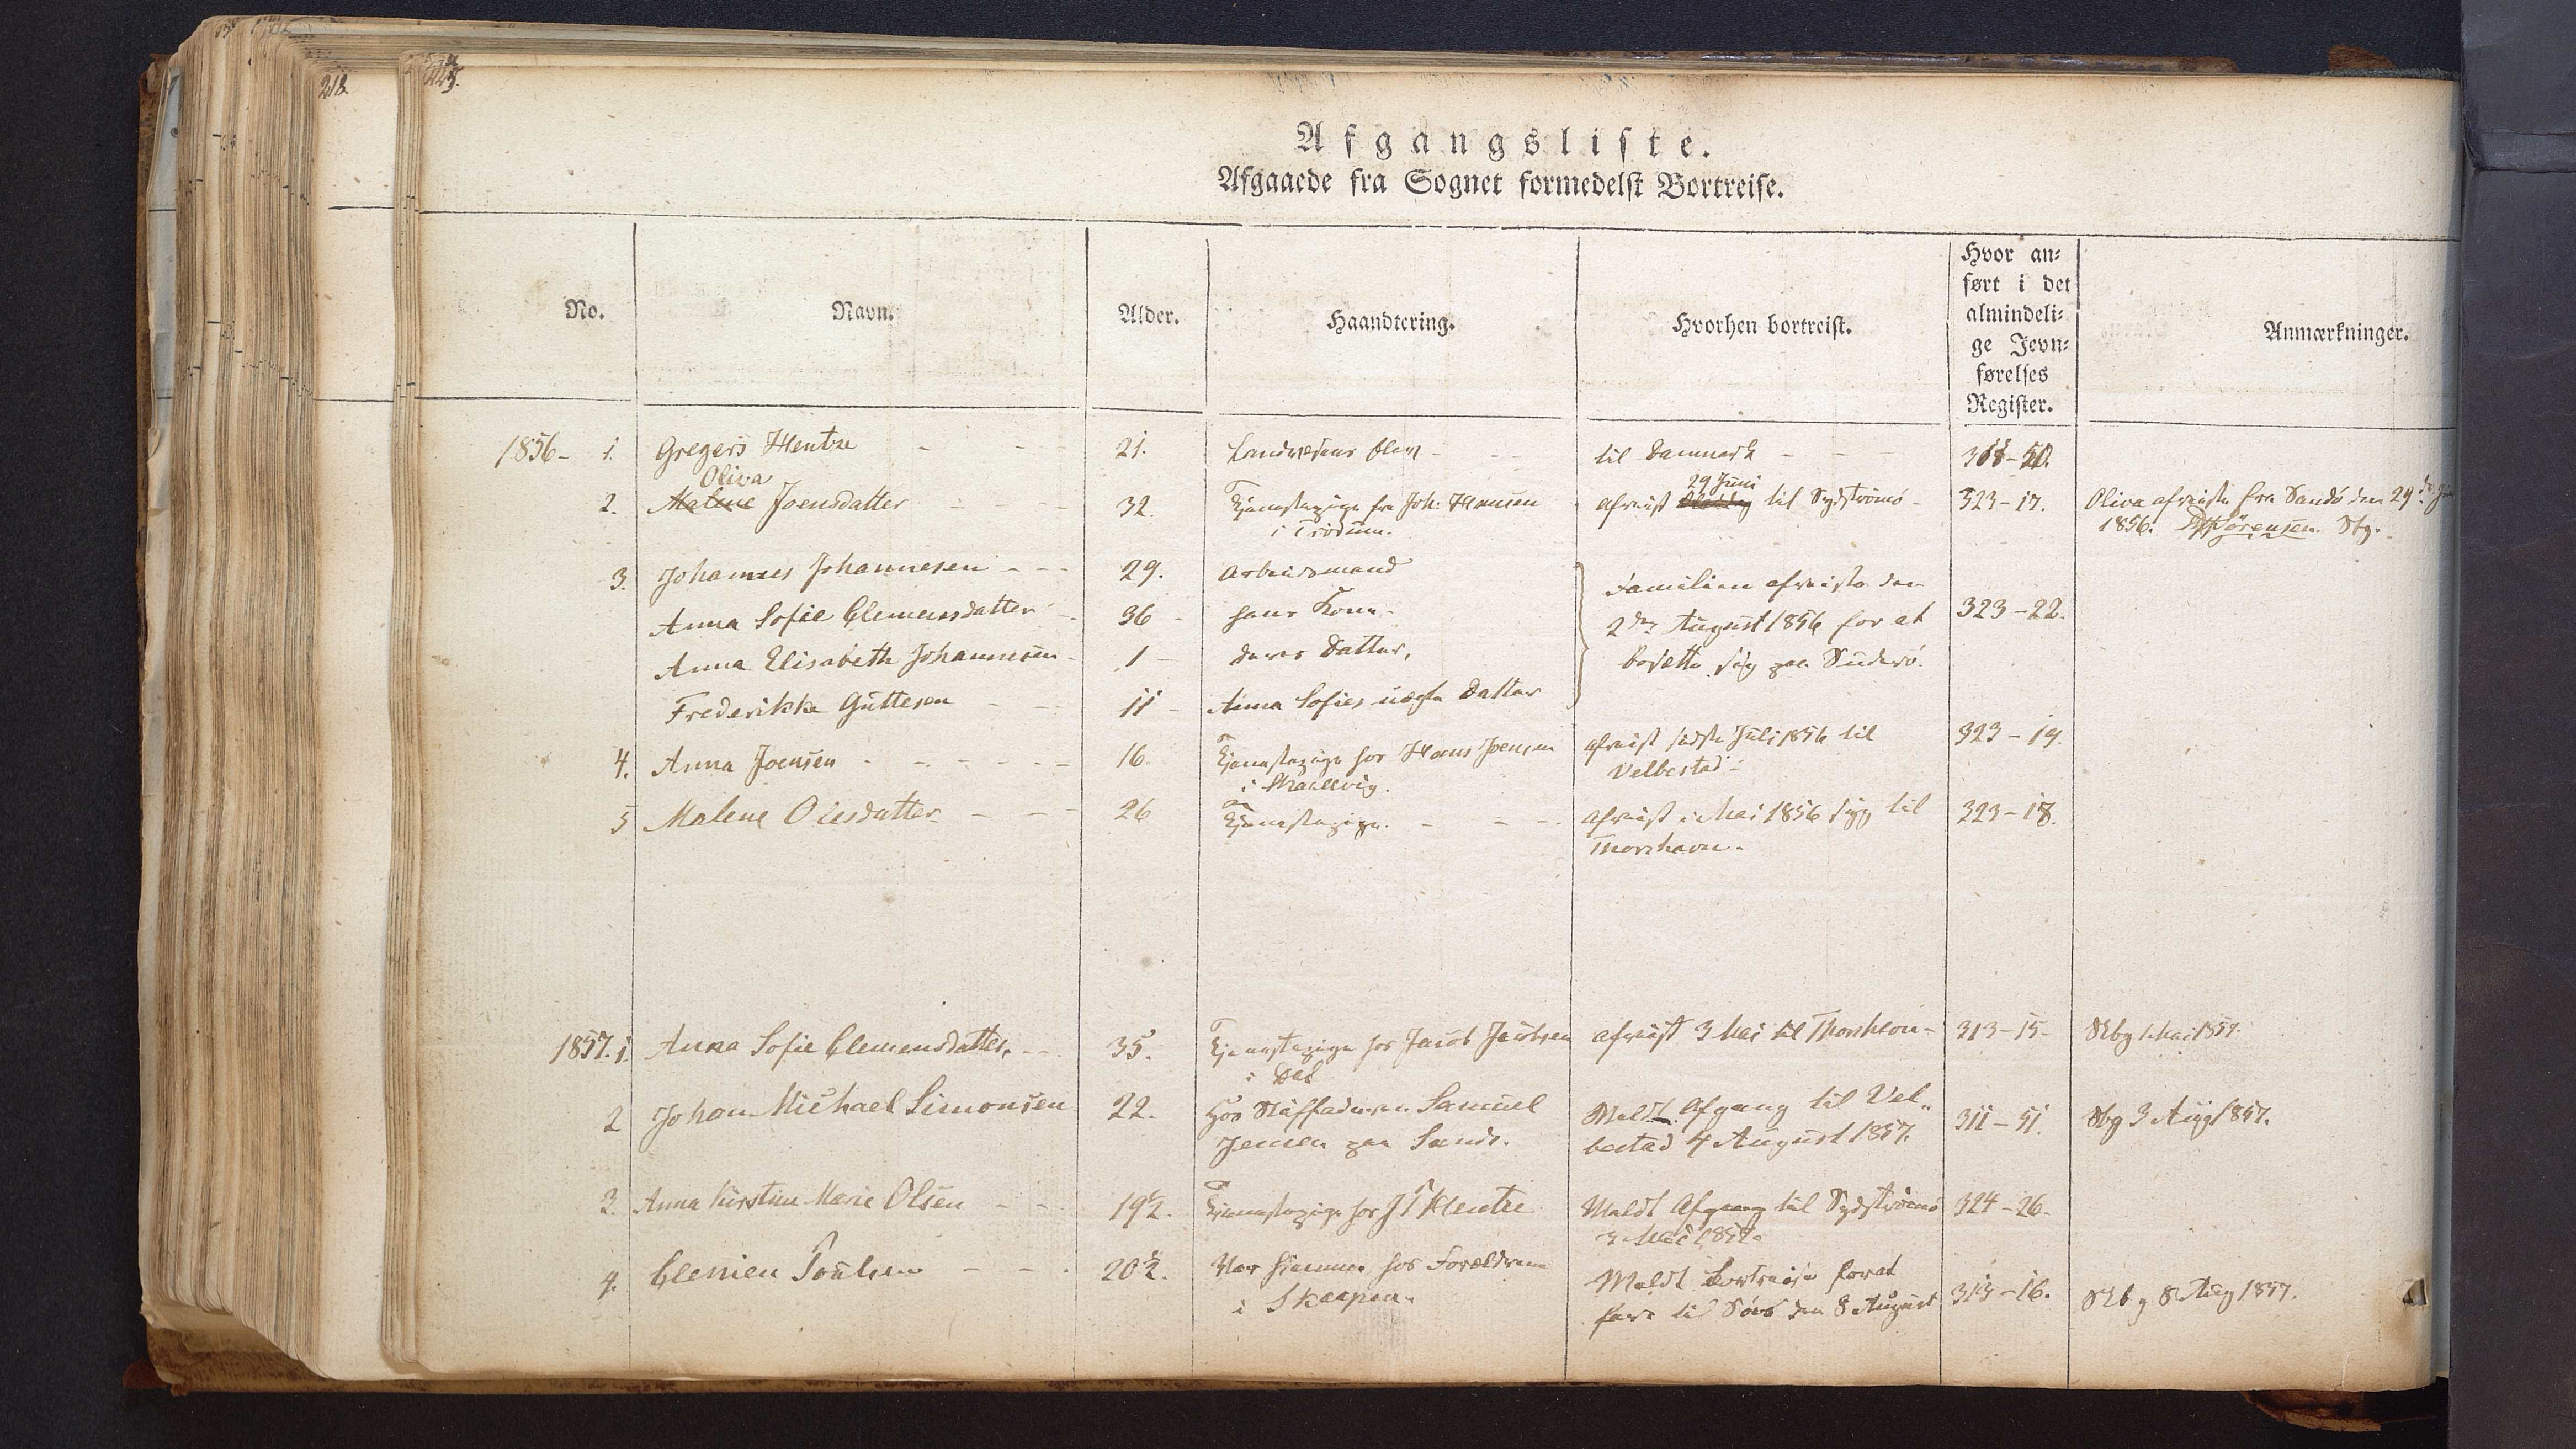 218.
225.
Afgangsliste.
Afgaaede fra Sognet formedelst Bortreise.
No. Navn. Alder. Haandtering. Hvorhen bortreist. Hvor an- ført i det almindeli- ge Jevn- førelses Register. Anmærkninger.
1856- 1. Gregers Hentze 21. Landvæsens Elev til Danmark 311-50.
Oliva
29 Juni
2. Malene Joensdatter 32. Tjenestepige fra Joh. Hansen afreist til Sydströmö 323-17. Oliva afreiste fra Sandö den 29de Juni
i Trödum. 1856. Sörensen. Stg.
3. Johannes Johannesen 29. Arbeidsmand Familien afreiste den
Anna Sofie Clemensdatter 36 hans Kone 2den August 1856 for at 323-22.
Anna Elisabeth Johannesen 1 deres Datter, bosætte sig paa Suderö.
Frederikke Guttesen 11 Anna Sofies uægte Datter
4. Anna Joensen 16 Tjenestepige hos Hans Joensen afreist sidste Juli 1856 til 323-19.
i Skaallvig. Velbestad
5 Malene Olesdatter 26 Tjenestepige. afreist i Mai 1856 syg til 323-18.
Thorshavn.
1857. 1. Anna Sofie Clemensdatter 35. Tjenestepige hos Jacob Jacobsen afreist 3 Mai til Thorshavn 313-15 Skbg 1 Mai 1857.
i Dal
2 Johan Michael Simonsen 22. Hos Skaffadmren Samuel Meldt Afgang til Vel- 311-51. Sbg 3 Aug 1857.
Jensen paa Sands. bestad 4 August 1857.
3. Anna Kirstine Marie Olsen 19½. Tjenestepige hos J Hentze Meldt Afgang til Sydströmö 324-26.
3 Mai 1857.
4. Clemen Poulsen 20½. Var hjemme hos Forældrene Meldt Bortreise forat 313-16. Skbg 8 Aug 1857.
i Skaapen. fare til Søes den 8 August